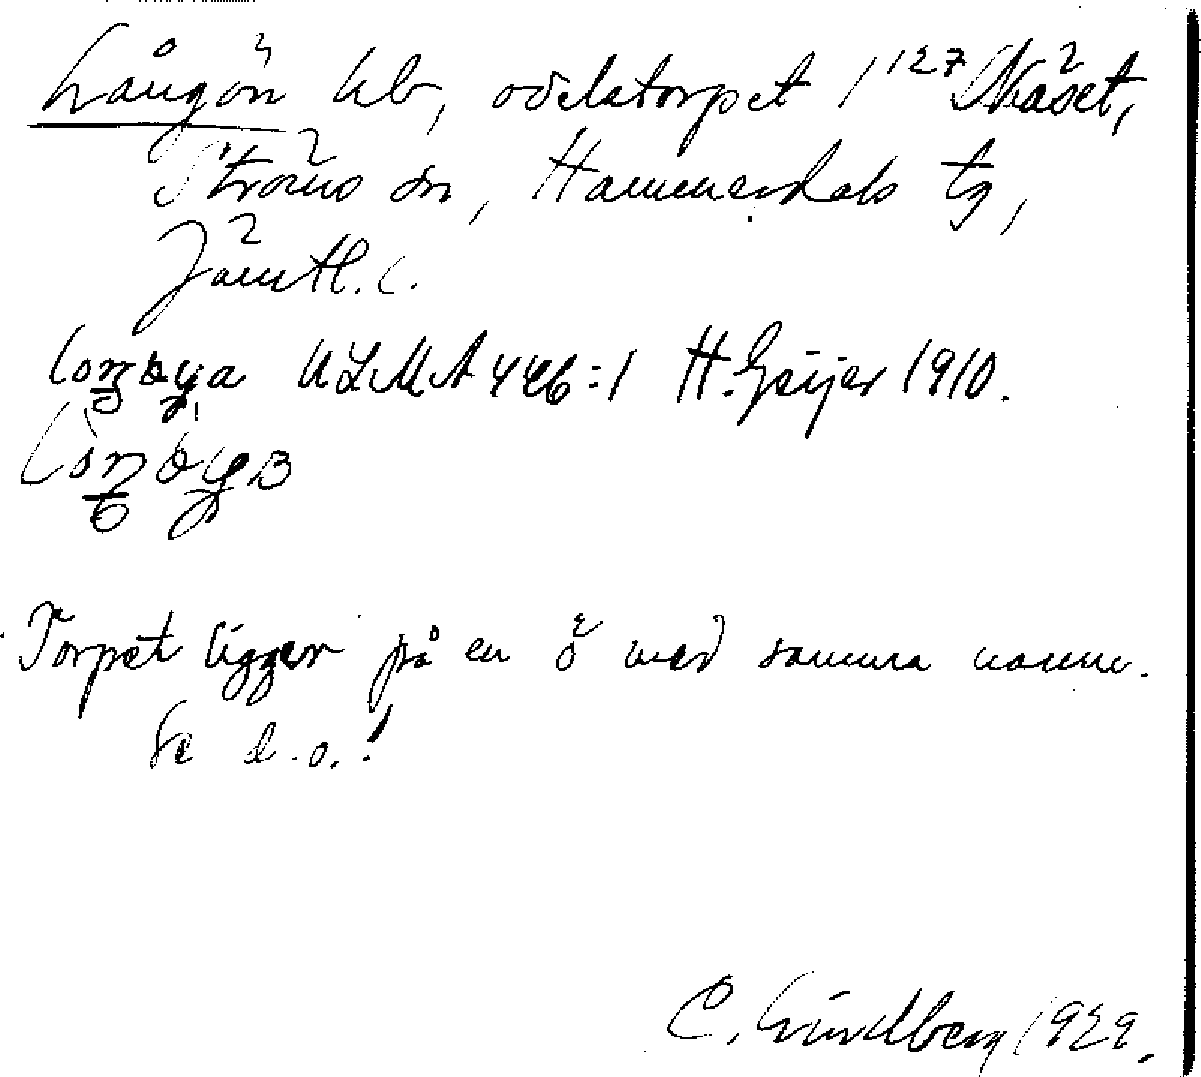 Långön ub, odelstorpet 1¹²⁷ Näset,
Ströms sn, Hammerdals tg,
Jämtl. l.
ULMA 446:1 H. Geijer 1910.
Torpet ligger på en ö med samma namn.
Se d. o.!
C. Lindberg 1929.